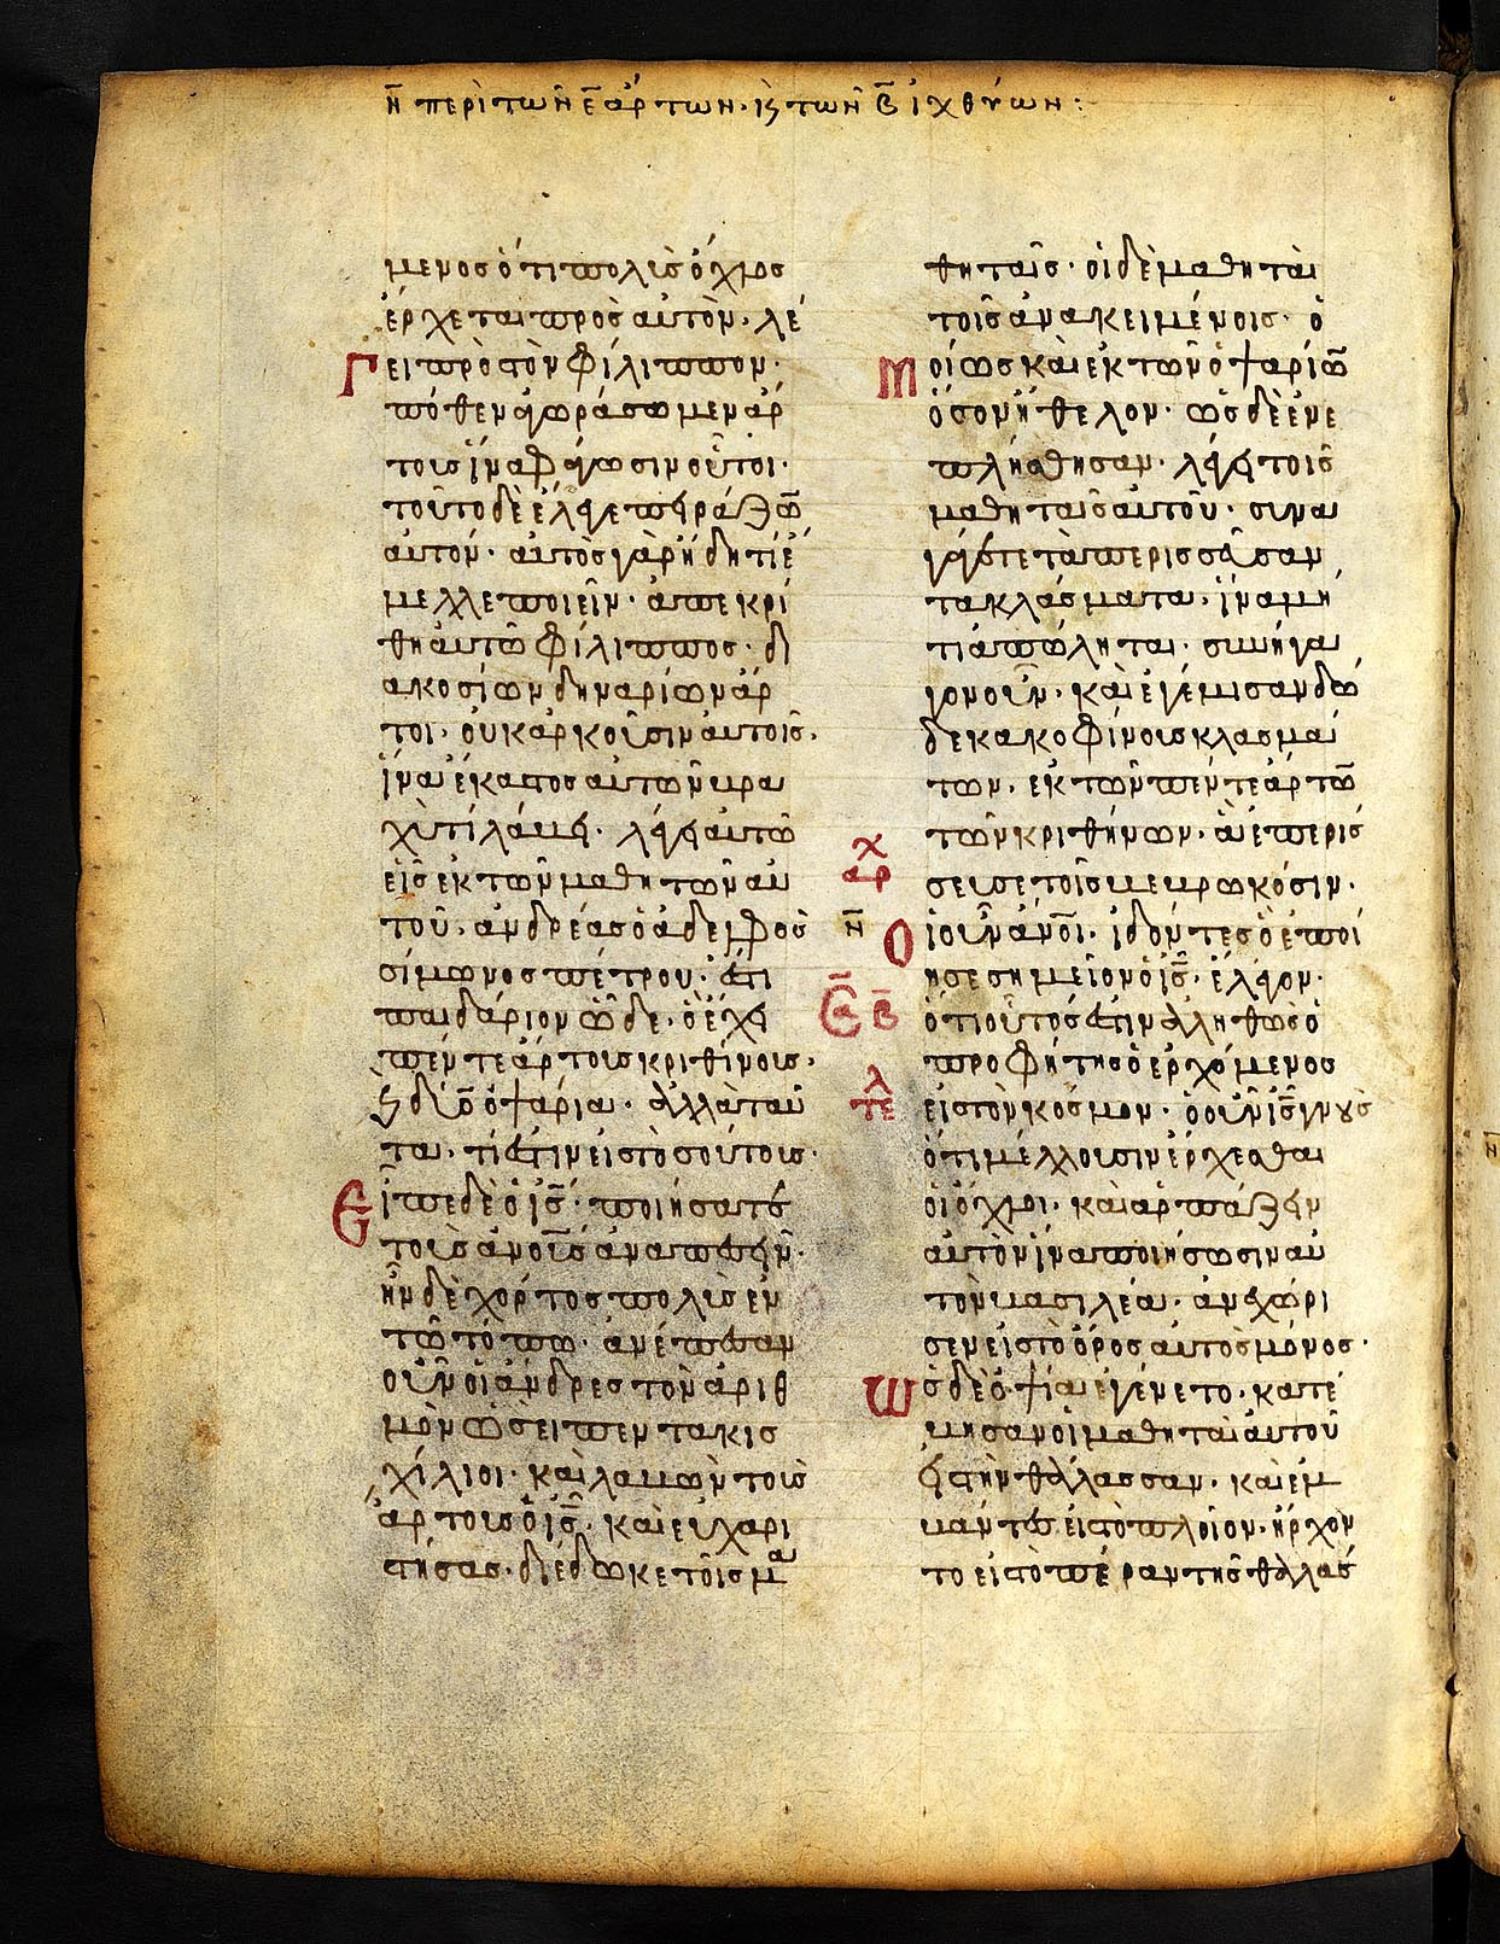 η̄ περὶ τῶν ε̄ ἄρτων· κ̀ τῶν β̄ ἰχθύων:
μενος ὅτι πολὺς ὄχλος
ἔρχεται πρὸς αὐτὸν· λέ
γει πρὸς τὸν φίλιππον·
πόθεν ἀγωράσωμεν ἄρ
τους ἵνα φάγωσιν οὗτοι·
τοῦτο δὲ ἔλεγε πειράζω̄
αὐτον· αὐτὸς γὰρ ἤδη τί ἔ
μελλε ποιεῖν· ἀπεκρί
θη αὐτῶ φίλιππος· δι
ακοσίων δηναρίων ἄρ
τοι· οὐκ ἀρκοῦσιν αὐτοῖς·
ἵνα ἕκαστος αὐτῶν βρα
χὺ τί λάβη· λέγει αὐτῶ
εἷς ἐκ τῶν μαθητῶν αὐ
τοῦ· ἀνδρέας ὁ ἀδελφὸς
σίμωνος πέτρου· ἔστι
παιδάριον ὧδε· ὃ ἔχει
πέντε ἄρτους κριθίνους·
κ̀ δύο ὀψάρια· ἀλλὰ ταῦ
τα· τί ἐστιν εἰς τὸσούτους·
Εἶπε δὲ ὁ ις̄· ποιήσατε
τοὺς ἀνοῦς ἀναπεσεῖν·
ἦν δὲ χόρτος πολὺς ἐν
τῶ τόπω· ἀνέπεσαν
οὖν οἱ ἄνδρες τὸν ἀριθ
μὸν ὡσεὶ πεντακισ
χίλιοι· καὶ λαβὼν τοὺς
ἄρτους ὁ ις̄· καὶ εὐχαρι
στήσας· διέδωκε τοῖς μα
θηταῖς· οἱ δὲ μαθηταὶ
τοῖς ἀνακειμένοις· ὁ
Μοίως καὶ ἐκ τῶν ὀψαρίω̄
ὅσον ἤθελον· ὡς δὲ ἐνε
πλήσθησαν· λέγει τοῖς
μαθηταῖς αὐτοῦ· συνα
γάγετε τὰ περισσεύσαν
τα κλάσματα· ἵνα μή
τι ἀπώληται· συνήγα
γον οὖν· καὶ ἐγέμισαν δώ
δεκα κοφίνους κλασμά
των· ἐκ τῶν πέντε ἄρτω̄
τῶν κριθήνων· ἃ ἐπερίσ
χ
αρ
σευσε τοῖς βεβρωκόσιν·
η̄
Οἱ οὖν ἄνο̄ι· ἰδόντες ὃ ἐποί
ησε σημεῖον ὁ ις̄· ἔλεγον·
ὅτι οὗτός ἐστιν ἀληθῶς ὁ
προφήτης ὁ ἐρχόμενος
λ
τε
εἰς τὸν κόσμον· ὁ οὖν ις̄ γνοὺς
ὅτι μέλλουσιν ἔρχεσθαι
οἱ ὄχλοι· καὶ ἁρπάζειν
αὐτὸν ἵνα ποιήσωσιν αὐ
τὸν βασιλέα· ἀνεχώρη
σεν εἰς τὸ ὄρος αὐτὸς μόνος·
Ὡς δὲ ὀψία ἐγένετο· κατέ
βησαν οἱ μαθηταὶ αὐτοῦ
εἰς τὴν θάλασσαν· καὶ ἐμ
βάντες εἰς τὸ πλοῖον· ἤρχον
το εἰς τὸ πέραν τῆς θαλάσ